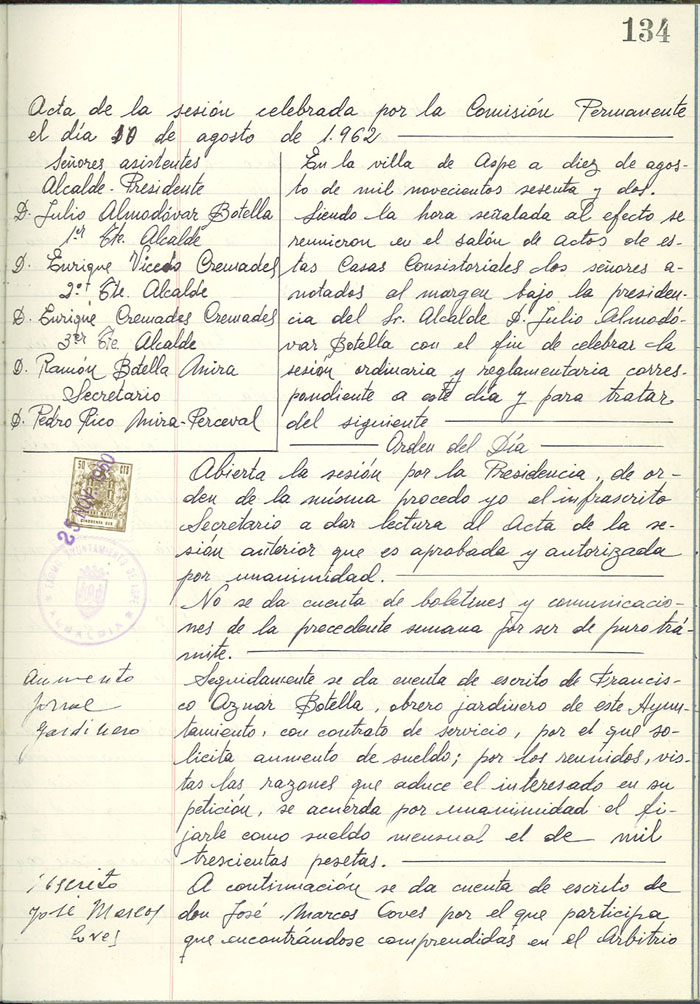 134
Acta de la sesión celebrada por la Comisión Permanente
el día 10 de agosto de 1.962
Señores asistentes
Alcalde-Presidente
D. Julio Almodóvar Botella
1er Tte. Alcalde
D. Enrique Vicedo Cremades
2º Tte. Alcalde
D. Enrique Cremades Cremades
3er Tte. Alcalde
D. Ramón Botella Mira
Secretario
D. Pedro Pico Mira-Perceval
En la villa de Aspe a diez de agos-
to de mil novecientos sesenta y dos.
Siendo la hora señalada al efecto se
reunieron en el salón de actos de es-
tas Casas Consistoriales los señores a-
notados al margen bajo la presiden-
cia del Sr. Alcalde D. Julio Almodó-
var Botella con el fin de celebrar la
sesión ordinaria y reglamentaria corres-
pondiente a este día y para tratar
del siguiente
Orden del Día
50 CTS
25 NOV. 1960
Abierta la sesión por la Presidencia, de or-
den de la misma procedo yo el infrascrito
Secretario a dar lectura al Acta de la se-
sión anterior que es aprobada y autorizada
por unanimidad.
AYUNTAMIENTO DE ASPE
ALCALDIA
No se da cuenta de boletines y comunicacio-
nes de la precedente semana por ser de puro trá-
mite.
Aumento
jornal
jardinero
Seguidamente se da cuenta de escrito de Francis-
co Aznar Botella, obrero jardinero de este Ayun-
tamiento, con contrato de servicio, por el que so-
licita aumento de sueldo; por los reunidos, vis-
tas las razones que aduce el interesado en su
petición, se acuerda por unanimidad el fi-
jarle como sueldo mensual el de mil
trescientas pesetas.
Escrito
José Marcos
Coves
A continuación se da cuenta de escrito de
don José Marcos Coves por el que participa
que encontrándose comprendidas en el Arbitrio